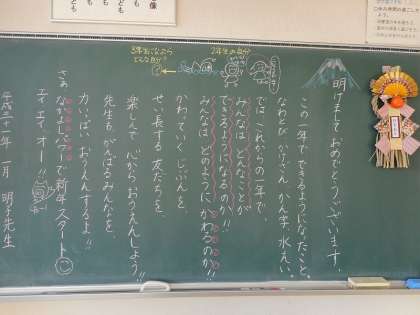 明けましておめでとうございます。
この一年でできるようになったこと。
なわとび かけざん かん字 水えい。
ではこれからの一年で、
みんなはどんなことが
できるようになるのか!!
みんなは どのように かわるのか!!
かわっていく じぶんを、
せい長する 友だちを、
楽しんで 心から おうえんしよう!!
先生も、がんばるみんなを、
力いっぱい おうえんするよ!!
さあ なかよしパワーで新年スタート
エイ、エイ、オー!!
平成三十一年 一月 明子先生
2年生の自分
3年生になったら
どんな自分?